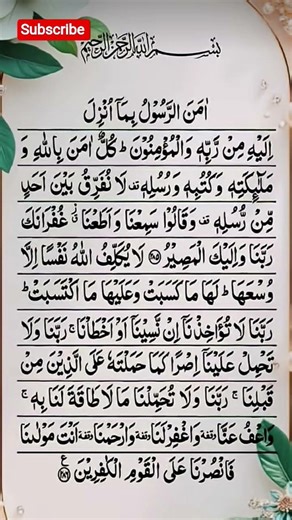 Subscribe
بِسْمِ اللّٰهِ الرَّحْمٰنِ الرَّحِيْمِ
اٰمَنَ الرَّسُوْلُ بِمَاۤ اُنْزِلَ
اِلَيْهِ مِنْ رَّبِّهٖ وَالْمُؤْمِنُوْنَ ؕ كُلٌّ اٰمَنَ بِاللّٰهِ وَ
مَلٰٓئِكَتِهٖ وَكُتُبِهٖ وَرُسُلِهٖ ۟ لَا نُفَرِّقُ بَيْنَ اَحَدٍ
مِّنْ رُّسُلِهٖ ۟ وَقَالُوْا سَمِعْنَا وَاَطَعْنَا ۫ غُفْرَانَكَ
رَبَّنَا وَاِلَيْكَ الْمَصِيْرُ ﴿۲۸۵﴾ لَا يُكَلِّفُ اللّٰهُ نَفْسًا اِلَّا
وُسْعَهَا ؕ لَهَا مَا كَسَبَتْ وَعَلَيْهَا مَا اكْتَسَبَتْ ؕ
رَبَّنَا لَا تُؤَاخِذْنَاۤ اِنْ نَّسِيْنَاۤ اَوْ اَخْطَاْنَا ۚ رَبَّنَا وَلَا
تَحْمِلْ عَلَيْنَاۤ اِصْرًا كَمَا حَمَلْتَهٗ عَلَى الَّذِيْنَ مِنْ
قَبْلِنَا ۚ رَبَّنَا وَلَا تُحَمِّلْنَا مَا لَا طَاقَةَ لَنَا بِهٖ ۚ
وَاعْفُ عَنَّا وقفة وَاغْفِرْ لَنَا وقفة وَارْحَمْنَا وقفة اَنْتَ مَوْلٰىنَا
فَانْصُرْنَا عَلَى الْقَوْمِ الْكٰفِرِيْنَ ﴿۲۸۶﴾ ع